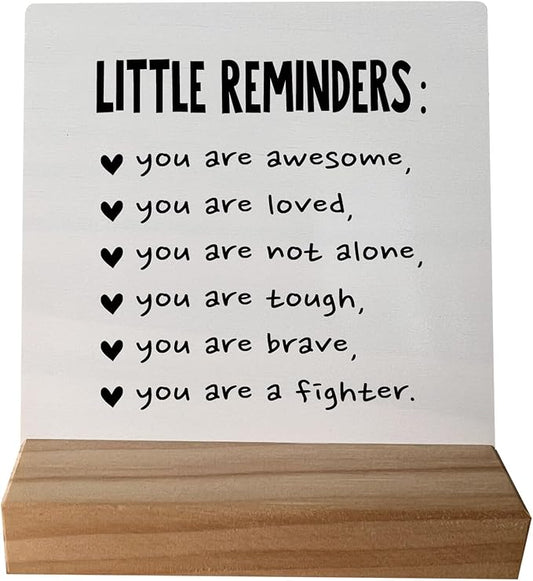 LITTLE REMINDERS:
♥ you are awesome,
♥ you are loved,
♥ you are not alone,
♥ you are tough,
♥ you are brave,
♥ you are a fighter.